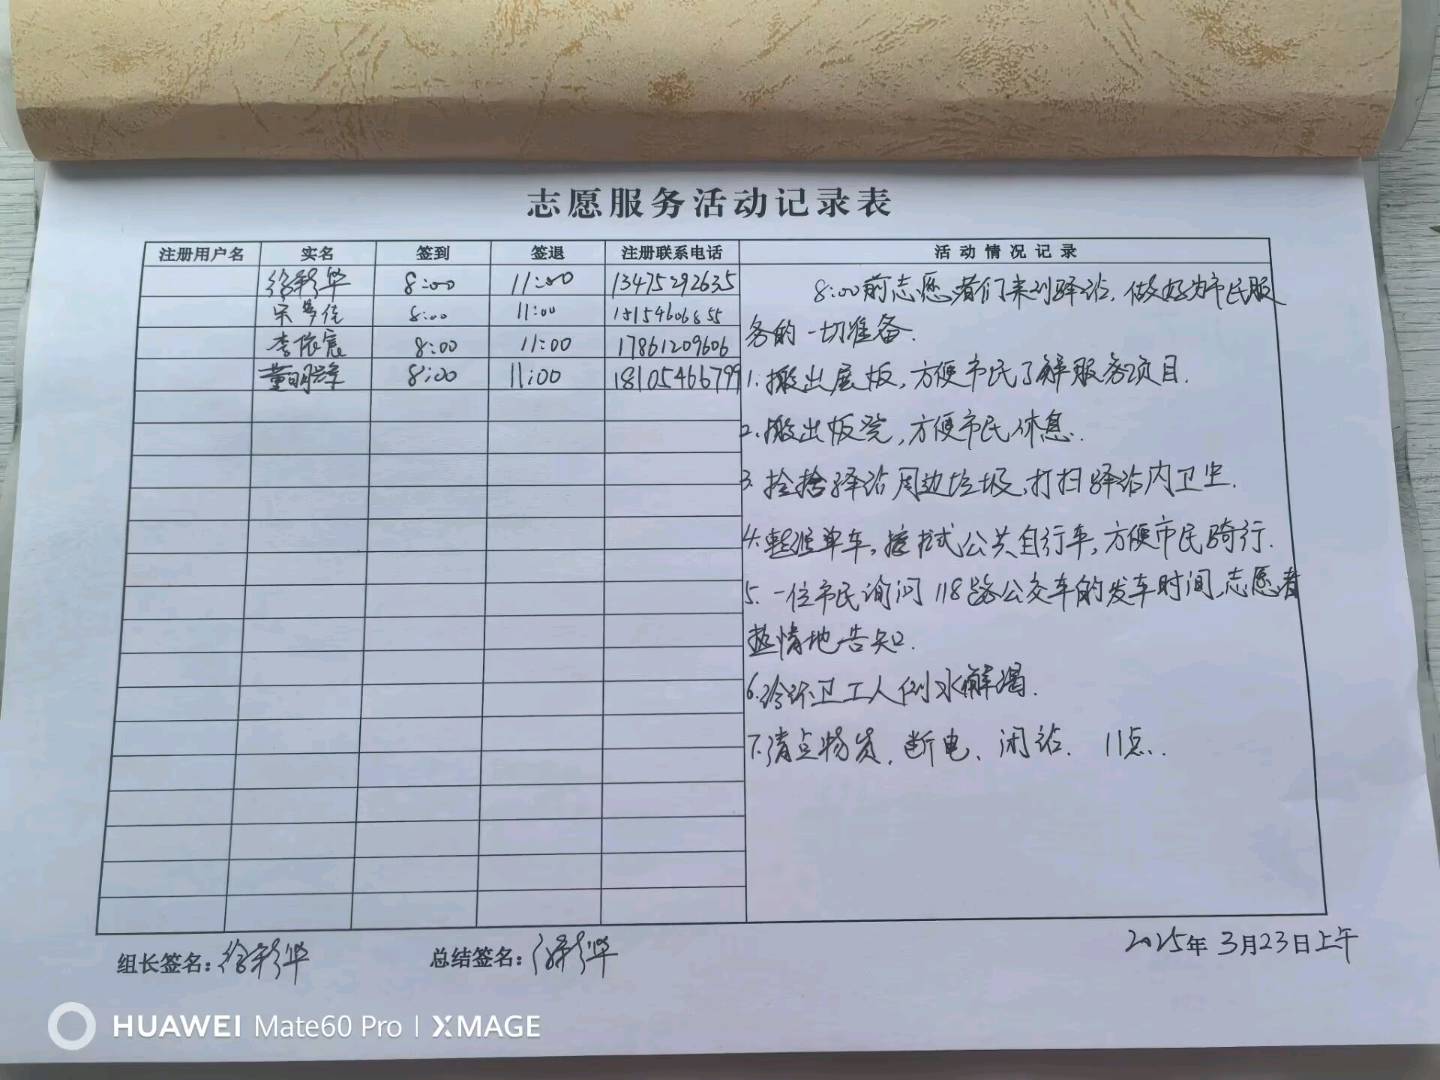 志愿服务活动记录表
注册用户名 实名 签到 签退 注册联系电话 活动情况记录
徐彩华 8:00 11:00 13475292635
宋 佳 8:00 11:00 15154606855
李依宸 8:00 11:00 17861209606
董明 8:00 11:00 18105466799
8:00前志愿者们来到驿站,做好为市民服
务的一切准备.
1.搬出展板,方便市民了解服务项目.
2.搬出板凳,方便市民休息.
3.捡拾驿站周边垃圾,打扫驿站内卫生.
4.整理单车,擦拭公共自行车,方便市民骑行.
5.一位市民询问118路公交车的发车时间,志愿者
热情地告知.
6.给环卫工人倒水解渴.
7.清点物资,断电、闭站. 11点.
组长签名:徐彩华 总结签名:徐彩华 2025年3月23日上午
HUAWEI Mate60 Pro | XMAGE